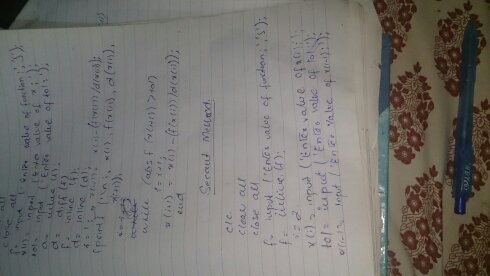 close all
f = input ('Enter value of function:','s');
x(1) = input ('Enter value of x:');
tol = input ('Enter value of tol:');
a = inline (f);
d = diff (f);
f = inline (f);
d = inline (d);
i = 1;
x(i+1) = x(i) - (f(x(i)) / d(x(i)));
while (abs f (x(i+1)) > tol)
i = i+1;
x(i+1) = x(i) - (f(x(i)) / d(x(i)));
end
Secant Method
clc
clear all
close all
f = input ('Enter value of function:','s');
f = inline (f);
i = 2
x(1) = input ('Enter value of x(1):');
tol = input ('Enter value of tol:');
input ('Enter value of x(i-1):');